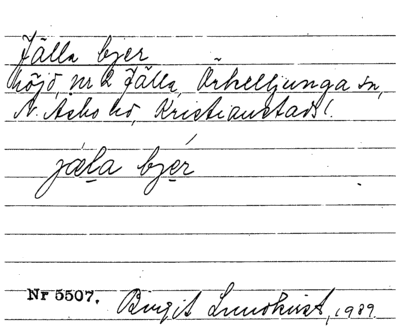 Jälla bjer
höjd, nr 2 Jälla, Örkelljunga sn,
N. Åsbo hd, Kristianstads l.
jæla bjér
Nr 5507. Birgit Lundkvist, 1989